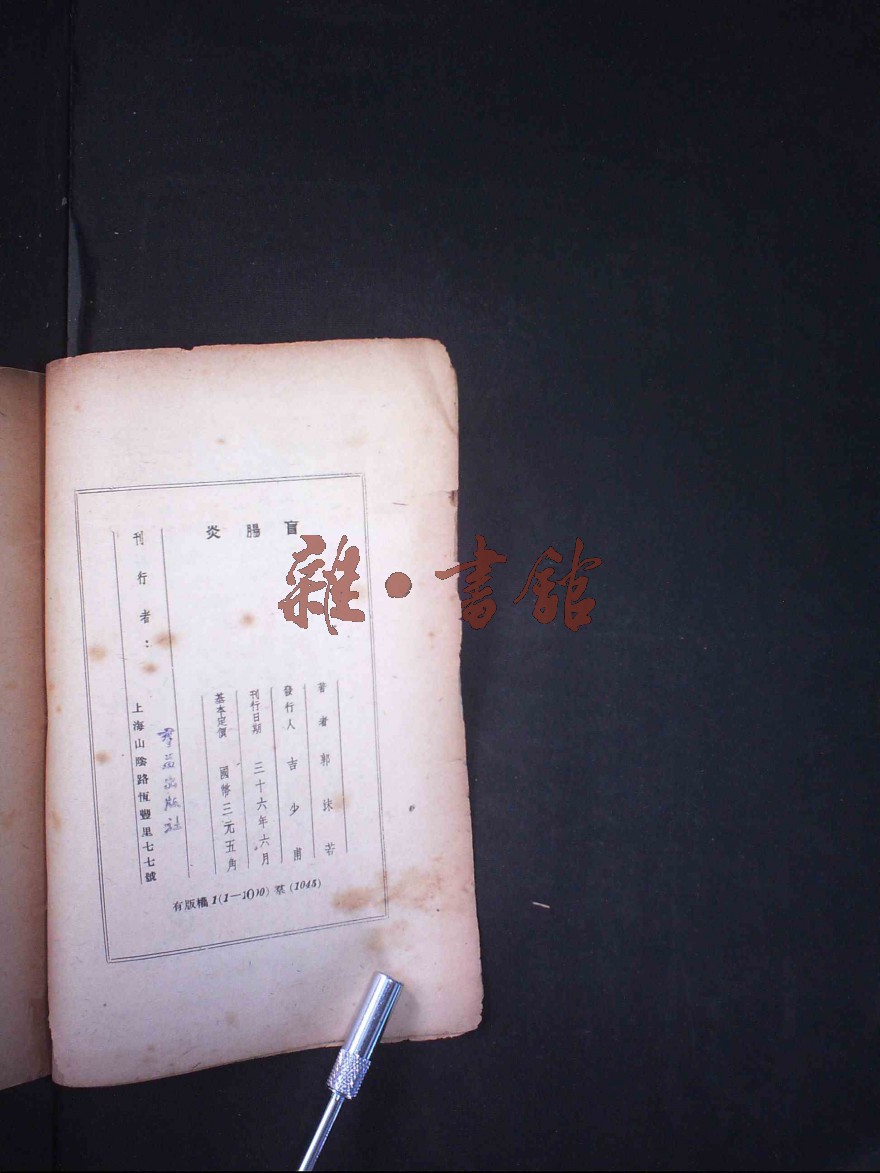 盲腸炎
著者 郭沫若
發行人 吉少甫
刊行日期 三十六年六月
基本定價 國幣三元五角
刊行者：
羣益出版社
上海山陰路恆豐里七七號
有版權 1(1—2000) 羣 (1045)
雜·書館